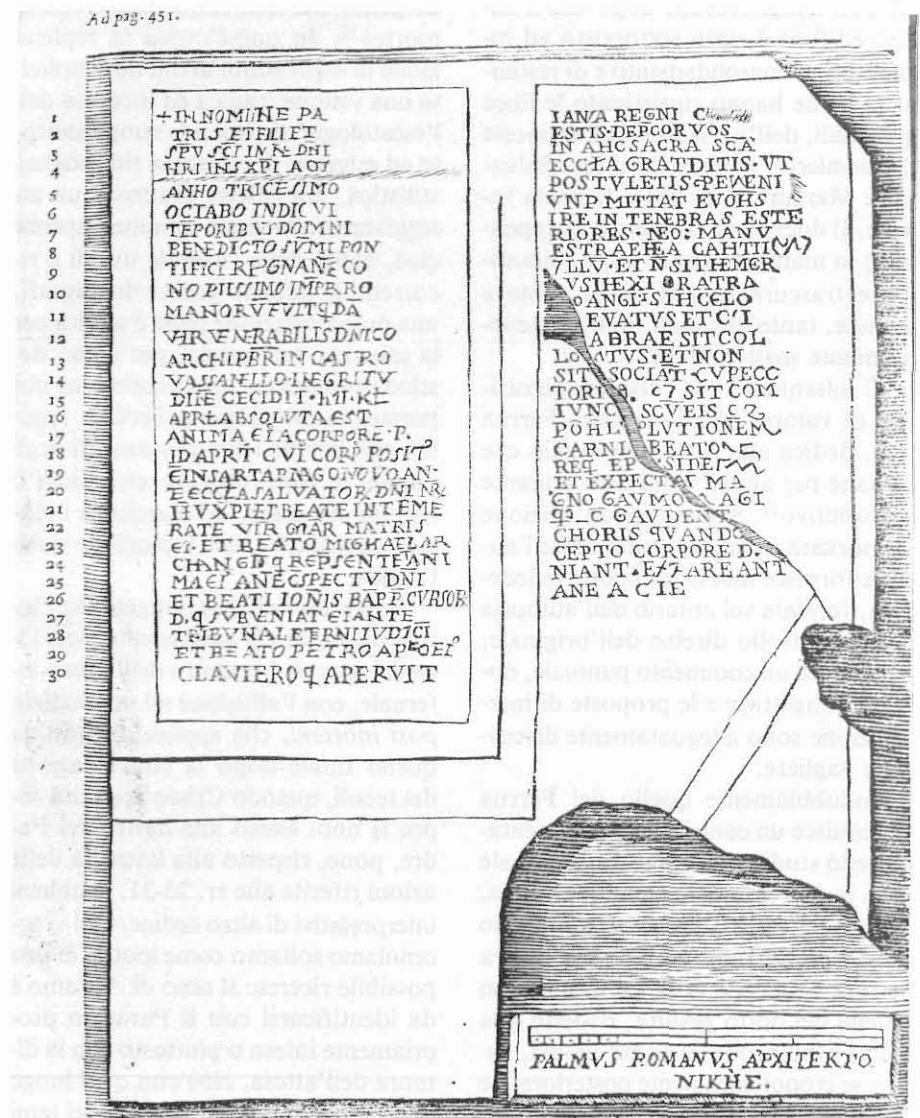 Ad pag. 451.
1 + IN NOMINE PA
2 TRIS ET FILII ET
3 SPU SCI IN N DNI
4 NRI IHS XPI ACT
5 ANHO TRICESIMO
6 OCTABO INDIC VI
7 TEPORIBUS DOMINI
8 BENEDICTO SUMI PON
9 TIFICI REGNANE CO
10 NO PIISSIMO IMPERO
11 MANORV FVIT QDA
12 VIR VENRABILIS DNICO
13 ARCHIPER IN CASTRO
14 VASSANELLO INEGRITV
15 DINE CECIDIT KL
16 APRL ABSOLVTA EST
17 ANIMA EI A CORPORE P
18 ID APRT CVI CORP POSIT
19 E IN SARTAPHAGO NOVO AN
20 TE ECCLA SALVATOR DNI NRI
21 IHV XPI ET BEATE INTEME
22 RATE VIR MAR MATRIS
23 EI ET BEATO MIGHAEL AR
24 CHAN ED Q REPSENTE ANT
25 MA EI ANEC SPECTV DNI
26 ET BEATI IONIS BAPP CVRSOR
27 D. Q SUBVENIAT EI ANTE
28 TRIBVNAL ETERNI IVDICI
29 ET BEATO PETRO
30 CLAVIERO Q APERVIT
IANVA REGNI
ESTIS DEPCOR VOS
IN AHC SACRA SCA
ECCLA GRATDITIS VT
POSTVLETIS PEVENI
VND MITTAT EVOHS
IRE IN TENBRAS ESTE
RIORES NEQ MANV
ESTRAEHEA CAHTII
7 LLV ET N SIT HEMER
VSIHEXI ORATRA
ANGL SIHCELO
EVATVS ET
ABRAE SIT COL
LOCATVS ET NON
SIT SOCIAT CVPECC
TORIB 7 SIT COM
IVNC SCVEIS
POH LVTIONEN
CARNI BEATO
REQ EP SIDE
ET EXPECTA MA
GNO GAVMON AGI
C GAVDENT
CHORIS QVANDO
CEPTO CORPORE D.
NIANT ESLARE ANT
ANE A CIE
PALMVS ROMANVS APXITEKTO
NIKHE